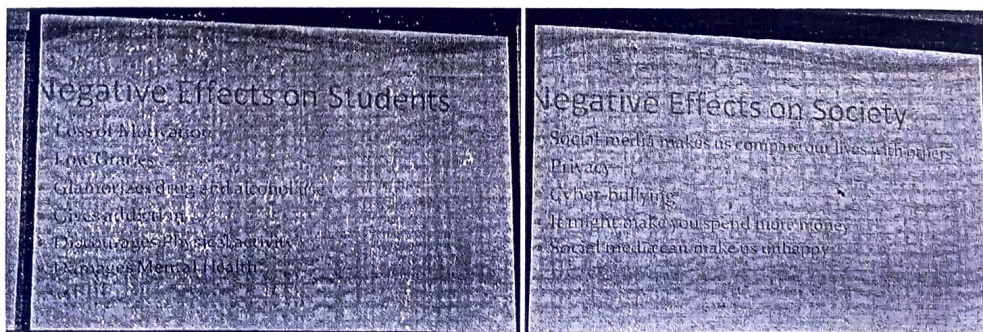 Negative Effects on Students
Loss of Motivation
Low Grades
Glamorizes drug and alcohol use
Gives addiction
Discourages Physical activity
Damages Mental Health
Negative Effects on Society
Social media makes us compare our lives with others
Privacy
Cyber-bullying
It might make you spend more money
Social media can make us unhappy